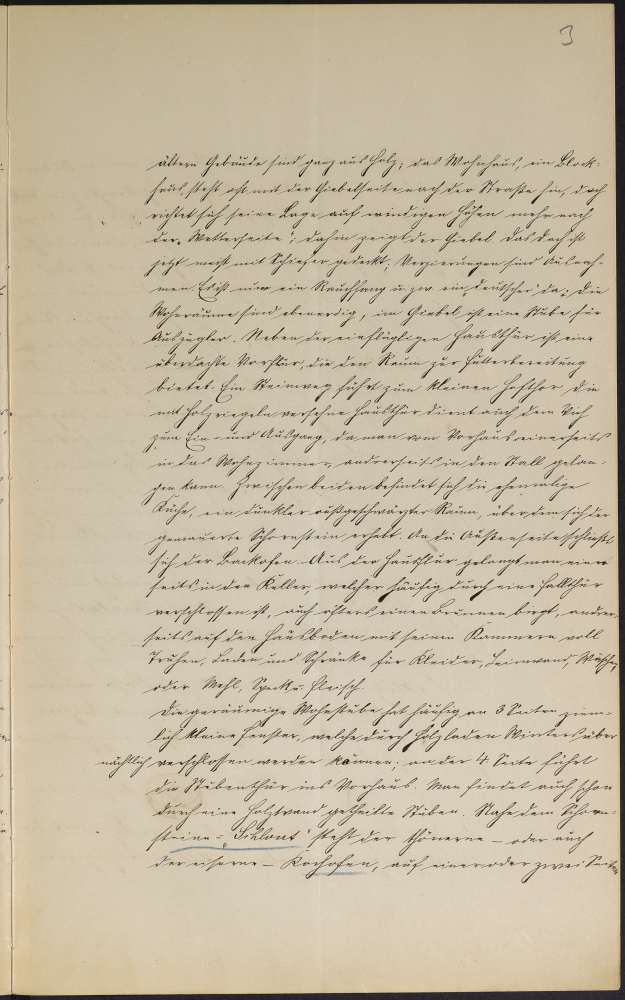 3
ältern Gebäude sind ganz aus Holz; das Wohnhaus, ein Block-
haus steht oft mit der Giebelseite nach der Straße hin, doch
richtet sich seine Lage auf windigen Höhen mehr nach
der „Wetterseite“; dahin zeigt der Giebel. Das Dach ist
jetzt meist mit Schiefer gedeckt; Verzierungen sind Ausnah-
men. Es ist nur ein Rauchfang u. zw. ein „deutscher“ da; die
Wohnräume sind ebenerdig, im Giebel ist eine Stube für
Auszügler. Neben der einflügligen Hausthür ist eine
überdachte Vorflur, die den Raum zur Futterbereitung
bietet. Ein Steinweg führt zum kleinen Hofthor, die
mit Holzriegeln versehne Hausthür dient auch dem Vieh
zum Ein- und Ausgang, da man vom Vorhaus einerseits
in das Wohnzimmer, andrerseits in den Stall gelan-
gen kann. Zwischen beiden befindet sich die ehemalige
Küche, ein dunkler rußgeschwärzter Raum, über dem sich der
gemauerte Schornstein erhebt. An die Außenseite schließt
sich der Backofen. Aus der Hausflur gelangt man einer
seits in den Keller, welcher häufig durch eine Fallthür
verschlossen ist, auch öfters einen Brunnen birgt, andrer-
seits auf den Hausboden mit seinen Kammern voll
Truhen, Laden und Schränke für Kleider, Leinwand, Wäsche,
oder Mehl, Speck u. Fleisch.
Die geräumige Wohnstube hat häufig an 3 Seiten ziem-
lich kleine Fenster, welche durch Holzladen Winters über
nächtlich verschlossen werden können; an der 4 Seite führt
die Stubenthür ins Vorhaus. Man findet auch schon
durch eine Holzwand getheilte Stuben. Nahe dem Schorn-
steine = steht der thönerne – oder auch
der eiserne – Kochofen, auf einer oder zwei Seiten